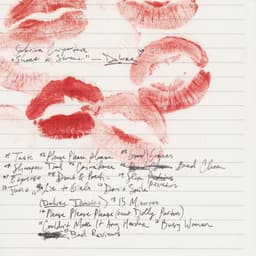 Sabrina Carpenter
"Short n' Sweet" — Deluxe
"Taste "Please Please Please "Good Graces
"Sharpest Tool "Coincidence Bed Chem
"Espresso "Dumb & Poetic "Slim
"Juno "Lie to Girls "Don't Smile
"15 Minutes
"Please Please Please (feat Dolly Parton)
"Couldn't Make It Any Harder "Busy Woman
Bad Reviews